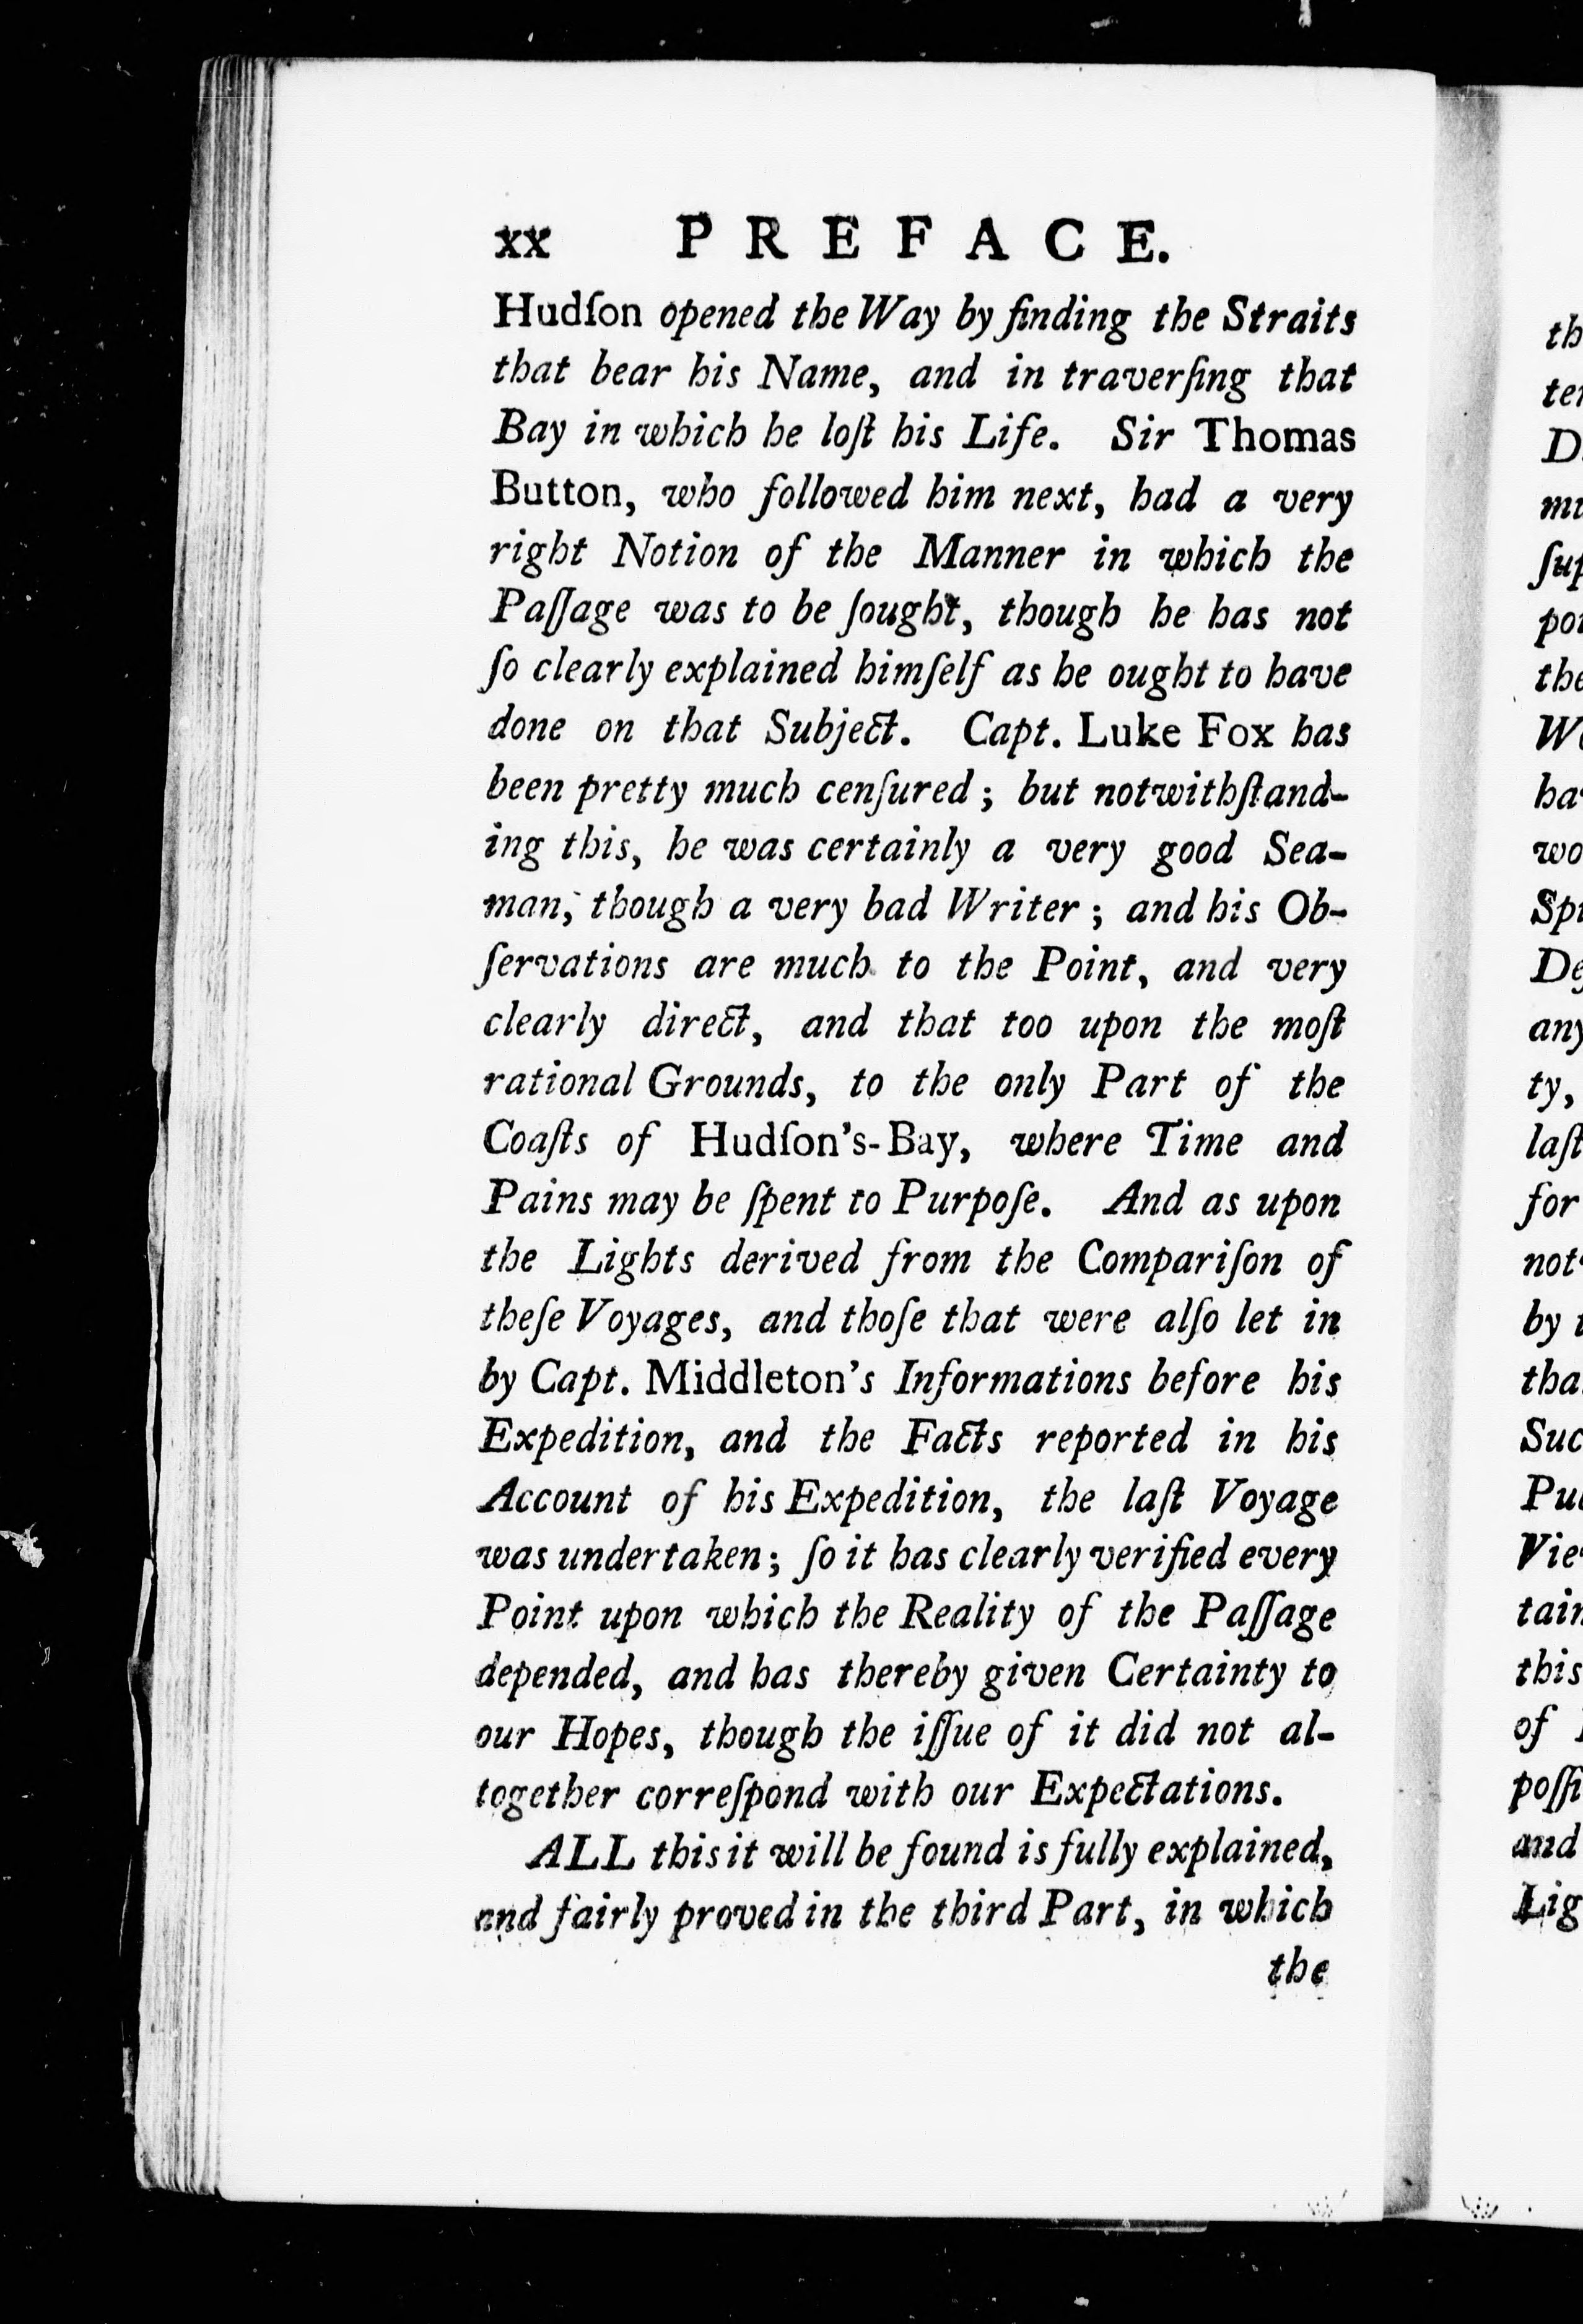 xx PREFACE.
Hudſon opened the Way by finding the Straits
that bear his Name, and in traverſing that
Bay in which he loſt his Life. Sir Thomas
Button, who followed him next, had a very
right Notion of the Manner in which the
Paſſage was to be ſought, though he has not
ſo clearly explained himſelf as he ought to have
done on that Subject. Capt. Luke Fox has
been pretty much cenſured; but notwithſtand-
ing this, he was certainly a very good Sea-
man, though a very bad Writer; and his Ob-
ſervations are much to the Point, and very
clearly direct, and that too upon the moſt
rational Grounds, to the only Part of the
Coaſts of Hudſon's-Bay, where Time and
Pains may be ſpent to Purpoſe. And as upon
the Lights derived from the Compariſon of
theſe Voyages, and thoſe that were alſo let in
by Capt. Middleton's Informations before his
Expedition, and the Facts reported in his
Account of his Expedition, the laſt Voyage
was undertaken; ſo it has clearly verified every
Point upon which the Reality of the Paſſage
depended, and has thereby given Certainty to
our Hopes, though the iſſue of it did not al-
together correſpond with our Expectations.
ALL this it will be found is fully explained,
and fairly proved in the third Part, in which
the